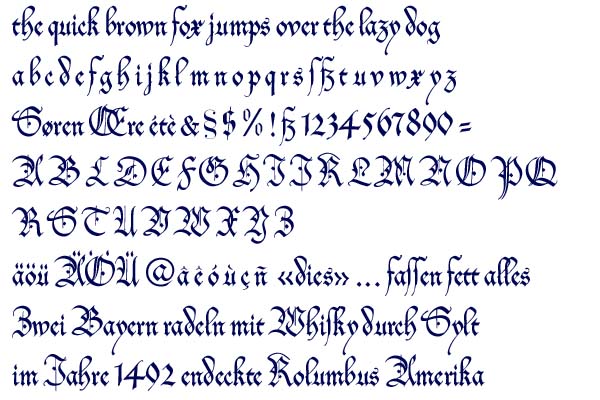 the quick brown fox jumps over the lazy dog
a b c d e f g h i j k l m n o p q r s ſ ß t u v w x y z
Søren Œrc étè & § $ % ! ß 1234567890 =
A B C D E F G H I J K L M N O P Q
R S T U V W X Y Z
äöü ÄÖÜ @ â ê ó ù ç ñ «dies» ... faſſen fett alles
Zwei Bayern radeln mit Whiſky durch Sylt
im Jahre 1492 endeckte Kolumbus Amerika